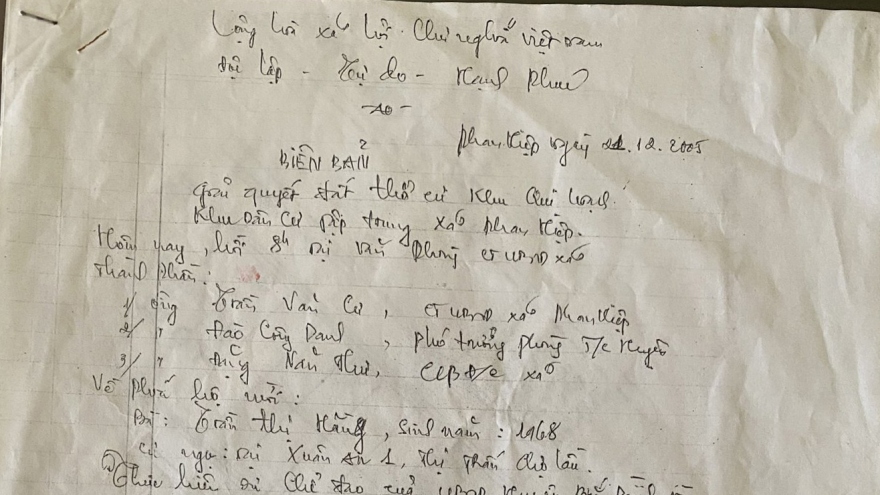 Cộng hoà xã hội chủ nghĩa việt nam
Độc lập - Tự do - Hạnh phúc
Phan Hiệp ngày 21.12.2005
BIÊN BẢN
giải quyết đất thổ cư khu qui hoạch
Khu dân cư tập trung xã phan Hiệp.
Hôm nay, hồi 8h tại văn phòng CT UBND xã
thành phần:
1/ ông Trần Văn Cư, CT UBND xã phan Hiệp
2/ " Đào Công Danh, phó trưởng phòng T/c huyện
3/ " Đặng Như, xã
Về phía hộ mời:
Bà: Trần thị Hằng, sinh năm: 1968
cư ngụ: tại Xuân An 1, thị trấn chợ lầu.
Thực hiện sự chỉ đạo của UBND huyện